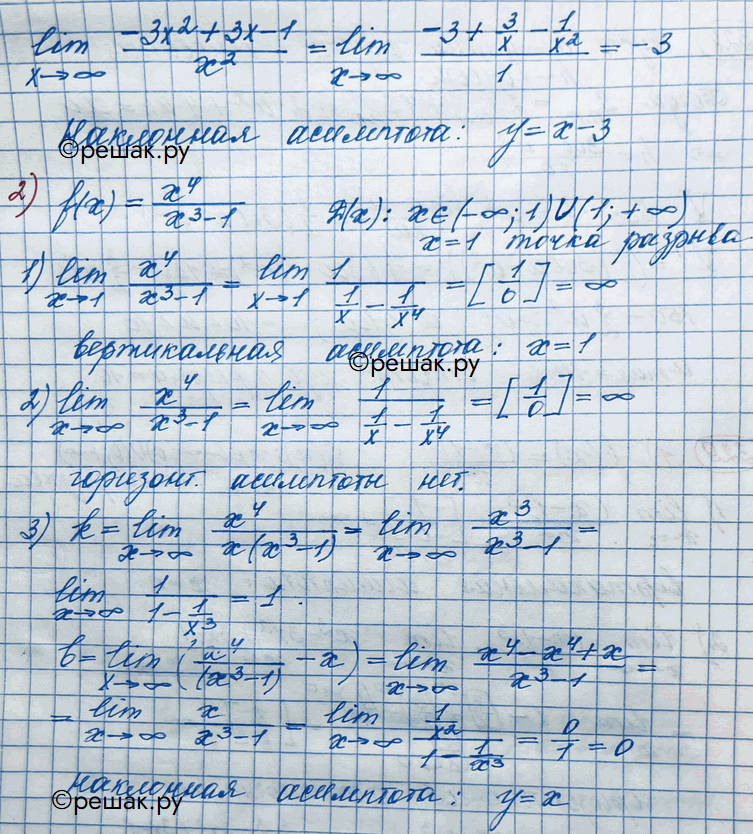 lim x→∞ (-3x² + 3x - 1)/x² = lim x→∞ (-3 + 3/x - 1/x²)/1 = -3
Наклонная асимптота: y = x - 3
©решак.ру
2) f(x) = x⁴/(x³-1) D(x): x∈(-∞; 1)∪(1; +∞)
x=1 точка разрыва
1) lim x→1 x⁴/(x³-1) = lim x→1 1/(1/x - 1/x⁴) = [1/0] = ∞
вертикальная асимптота: x=1
©решак.ру
2) lim x→∞ x⁴/(x³-1) = lim x→∞ 1/(1/x - 1/x⁴) = [1/0] = ∞
горизонт. асимптоты нет.
3) k = lim x→∞ x⁴/(x(x³-1)) = lim x→∞ x³/(x³-1) =
lim x→∞ 1/(1 - 1/x³) = 1.
b = lim x→∞ (x⁴/(x³-1) - x) = lim x→∞ (x⁴ - x⁴ + x)/(x³-1) =
= lim x→∞ x/(x³-1) = lim x→∞ (1/x²)/(1 - 1/x³) = 0/1 = 0
наклонная асимптота: y = x
©решак.ру